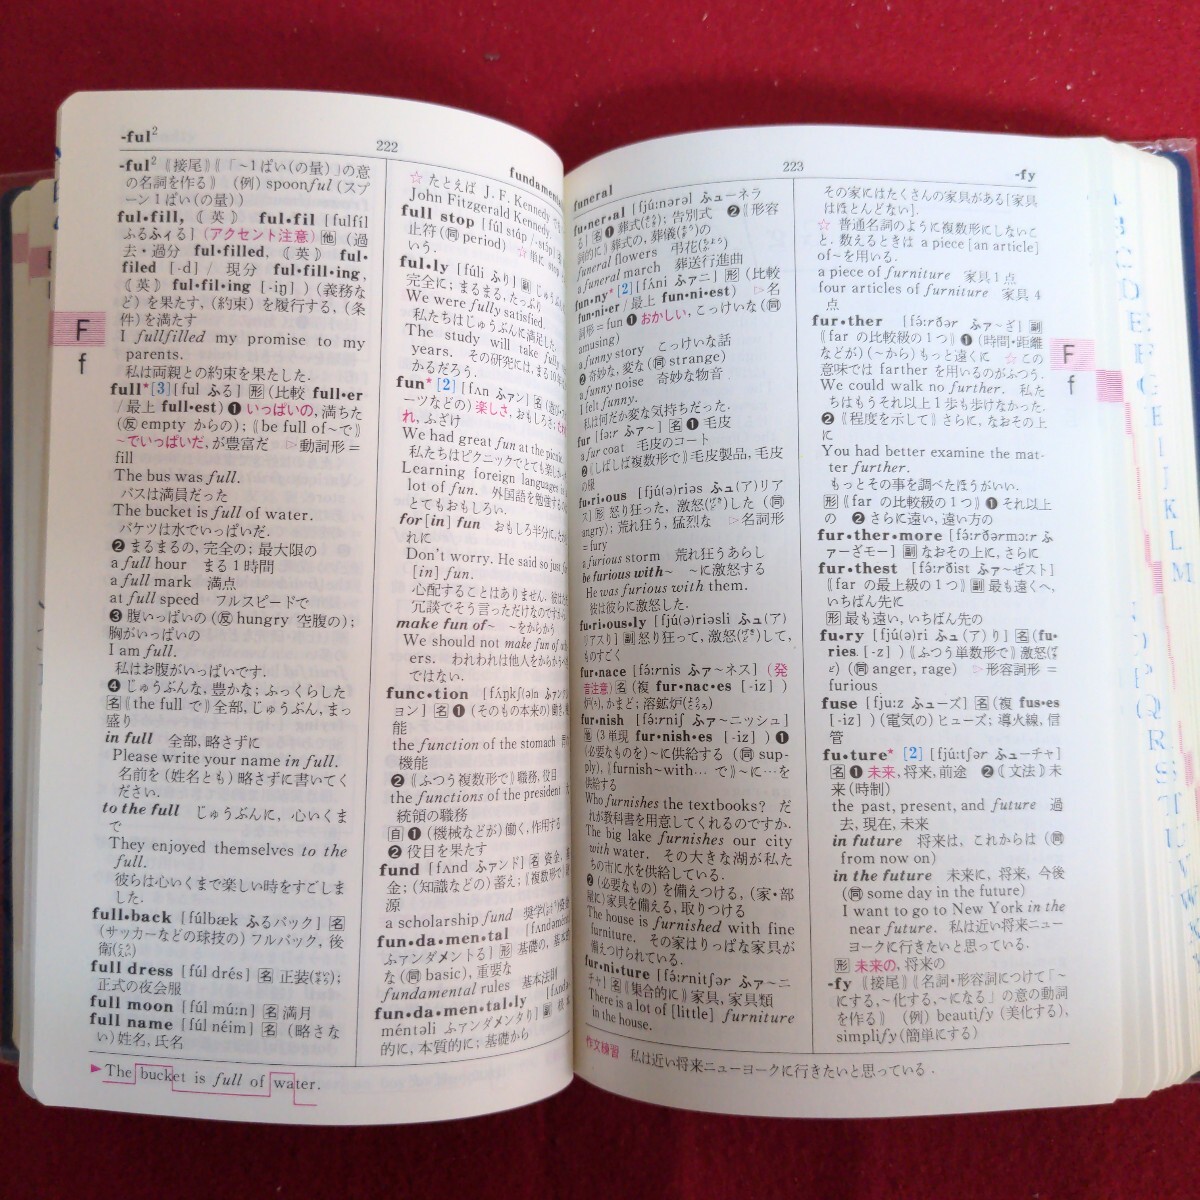 -ful²
222
fundamental
-ful² 《接尾》《「~1ぱい(の量)」の意
の名詞を作る》 (例) spoonful (スプ
ーン1ぱい(の量))
ful•fill, 《英》 ful•fil [fulfíl
ふるふィる] (アクセント注意) 他 (過
去・過分 ful•filled, 《英》 ful•
filed [-d] / 現分 ful•fill•ing,
《英》 ful•fil•ing [-iŋ] ) (義務な
ど) を果たす, (約束) を履行する, (条
件)を満たす
I fullfilled my promise to my
parents.
私は両親との約束を果たした.
full*[3] [ful ふる] 形 (比較 full•er
/ 最上 full•est) ❶ いっぱいの, 満ちた
(反 empty からの); 《be full of~で》
~でいっぱいだ, が豊富だ ▷動詞形=
fill
The bus was full.
バスは満員だった
The bucket is full of water.
バケツは水でいっぱいだ.
❷ まるまるの, 完全の; 最大限の
a full hour まる1時間
a full mark 満点
at full speed フルスピードで
❸ 腹いっぱいの (反 hungry 空腹の);
胸がいっぱいの
I am full.
私はお腹がいっぱいです.
❹ じゅうぶんな, 豊かな; ふっくらした
名 《the full で》全部, じゅうぶん, まっ
盛り
in full 全部, 略さずに
Please write your name in full.
名前を (姓名とも) 略さずに書いてく
ださい.
to the full じゅうぶんに, 心いくま
で
They enjoyed themselves to the
full.
彼らは心いくまで楽しい時をすごしま
した.
full•back [fúlbæk ふるバック] 名
(サッカーなどの球技の) フルバック, 後
衛(こうえい)
full dress [fúl drés] 名 正装(せいそう);
正式の夜会服
full moon [fúl múːn] 名 満月
full name [fúl néim] 名 (略さな
い)姓名, 氏名
▶The bucket is full of water.
☆ たとえば J. F. Kennedy
John Fitzgerald Kennedy
full stop [fúl stáp / -stɔ́p]
止符 (同 period) ☆
いう.
ful•ly [fúli ふり] 副 じゅうぶん
完全に; まるまる, たっぷり
We were fully satisfied.
私たちはじゅうぶんに満足した.
The study will take fully
years. その研究には, まる10年
かるだろう.
fun* [2] [fʌn ふァン] 名
ーツなどの) 楽しさ, おもしろさ;
れ, ふざけ
We had great fun at the picnic.
私たちはピクニックでとても楽し
Learning foreign languages is
lot of fun. 外国語を勉強する
とてもおもしろい.
for [in] fun おもしろ半分に,
れに
Don't worry. He said so just for
[in] fun.
心配することはありません.
冗談でそう言っただけなのです.
make fun of~ ~をからかう
We should not make fun of oth-
ers. われわれは他人をからかうべ
ではない.
func•tion [fʌ́ŋkʃ(ə)n ふァンク
ョン] 名 ❶ (そのもの本来の) 働き,
能
the function of the stomach
機能
❷ 《ふつう複数形で》職務, 役目
the functions of the president
統領の職務
自 ❶ (機械などが) 働く, 作用する
❷ 役目を果たす
fund [fʌnd ふァンド] 名 資金,
金; (知識などの) 蓄え; 《複数形で》
源
a scholarship fund
fun•da•men•tal [fʌndəméntl
ふァンダメントる] 形 基礎の, 基本的
な (同 basic), 重要な
fundamental rules 基本法則
fun•da•men•tal•ly [fʌndə-
méntəli ふァンダメンタり] 副
的に, 本質的に; 基礎から
funeral
223
-fy
fu•ner•al [fjúːnərəl ふューネラ
る] 名 ❶ 葬式(そうしき); 告別式 ❷ 《形容
詞的に》葬式の, 葬儀(そうぎ)の
funeral flowers 弔花(ちょうか)
a funeral march 葬送行進曲
fun•ny* [2] [fʌ́ni ふァニ] 形 (比較
fun•ni•er / 最上 fun•ni•est) ▷名
詞形=fun ❶ おかしい, こっけいな (同
amusing)
a funny story こっけいな話
❷ 奇妙な, 変な (同 strange)
a funny noise 奇妙な物音
I felt funny.
私は何だか変な気持ちだった.
fur [fəːr ふァ~] 名 ❶ 毛皮
a fur coat 毛皮のコート
❷ 《しばしば複数形で》毛皮製品, 毛皮
の服
fu•ri•ous [fjú(ə)riəs ふュ(ア)リア
ス] 形 怒り狂った, 激怒(げきど)した (同
angry); 荒れ狂う, 猛烈な ▷名詞形
=fury
a furious storm 荒れ狂うあらし
be furious with~ ~に激怒する
He was furious with them.
彼は彼らに激怒した.
fu•ri•ous•ly [fjú(ə)riəsli ふュ(ア)
リアスり] 副 怒り狂って, 激怒(げきど)して,
ものすごく
fur•nace [fə́ːrnis ふァ~ネス] (発
音注意) 名 (複 fur•nac•es [-iz] )
炉(ろ), かまど; 溶鉱炉(ようこうろ)
fur•nish [fə́ːrniʃ ふァ~ニッシュ]
他 (3単現 fur•nish•es [-iz] ) ❶
(必要なものを)~に供給する (同 sup-
ply), 《furnish~with… で》~に…を
供給する
Who furnishes the textbooks? だ
れが教科書を用意してくれるのですか.
The big lake furnishes our city
with water. その大きな湖が私た
ちの市に水を供給している.
❷ (必要なもの) を備えつける, (家・部
屋に)家具を備える, 取りつける
The house is furnished with fine
furniture. その家はりっぱな家具が
備えつけられている.
fur•ni•ture [fə́ːrnitʃər ふァ~ニ
チャ] 名 《集合的に》家具, 家具類
There is a lot of [little] furniture
in the house.
作文練習 私は近い将来ニューヨークに行きたいと思っている.
その家にはたくさんの家具がある[家具
はほとんどない].
☆ 普通名詞のように複数形にしないこ
と. 数えるときは a piece [an article]
of~を用いる.
a piece of furniture 家具1点
four articles of furniture 家具4
点
fur•ther [fə́ːrðər ふァ~ざ] 副
《far の比較級の1つ》 ❶ (時間・距離
などが) (~から) もっと遠くに ☆ この
意味では farther を用いるのがふつう.
We could walk no further. 私た
ちはもうそれ以上1歩も歩けなかった.
❷ 《程度を示して》さらに, なおその上
に
You had better examine the mat-
ter further.
もっとその事を調べたほうがいい.
形 《far の比較級の1つ》 ❶ それ以上
の ❷ さらに遠い, 遠い方の
fur•ther•more [fə́ːrðərmɔːr ふ
ァーざモー] 副 なおその上に, さらに
fur•thest [fə́ːrðist ふァ~ゼスト]
《far の最上級の1つ》 副 最も遠くへ,
いちばん先に
形 最も遠い, いちばん先の
fu•ry [fjú(ə)ri ふュ(ア)り] 名 (fu-
ries. [-z] ) 《ふつう単数形で》激怒(げき
ど) (同 anger, rage) ▷形容詞形=
furious
fuse [fjuːz ふューズ] 名 (複 fus•es
[-iz] ) (電気の) ヒューズ; 導火線, 信
管
fu•ture* [2] [fjúːtʃər ふューチャ]
名 ❶ 未来, 将来, 前途 ❷ 《文法》未
来 (時制)
the past, present, and future 過
去, 現在, 未来
in future 将来は, これからは (同
from now on)
in the future 未来に, 将来, 今後
(同 some day in the future)
I want to go to New York in the
near future. 私は近い将来ニュー
ヨークに行きたいと思っている.
形 未来の, 将来の
-fy 《接尾》《名詞・形容詞につけて「~
にする, ~化する, ~になる」の意の動詞
を作る》 (例) beautify (美化する),
simplify (簡単にする)
F
f
F
f